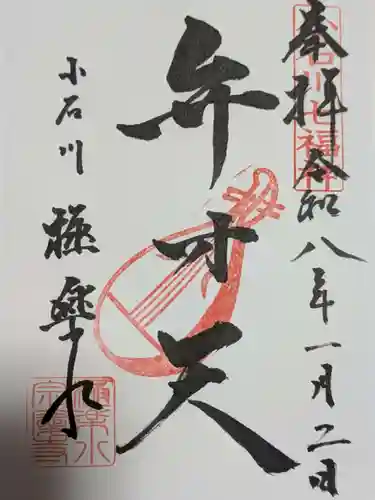 奉拝 令和八年一月二日
小石川七福神
弁才天
小石川
極楽水